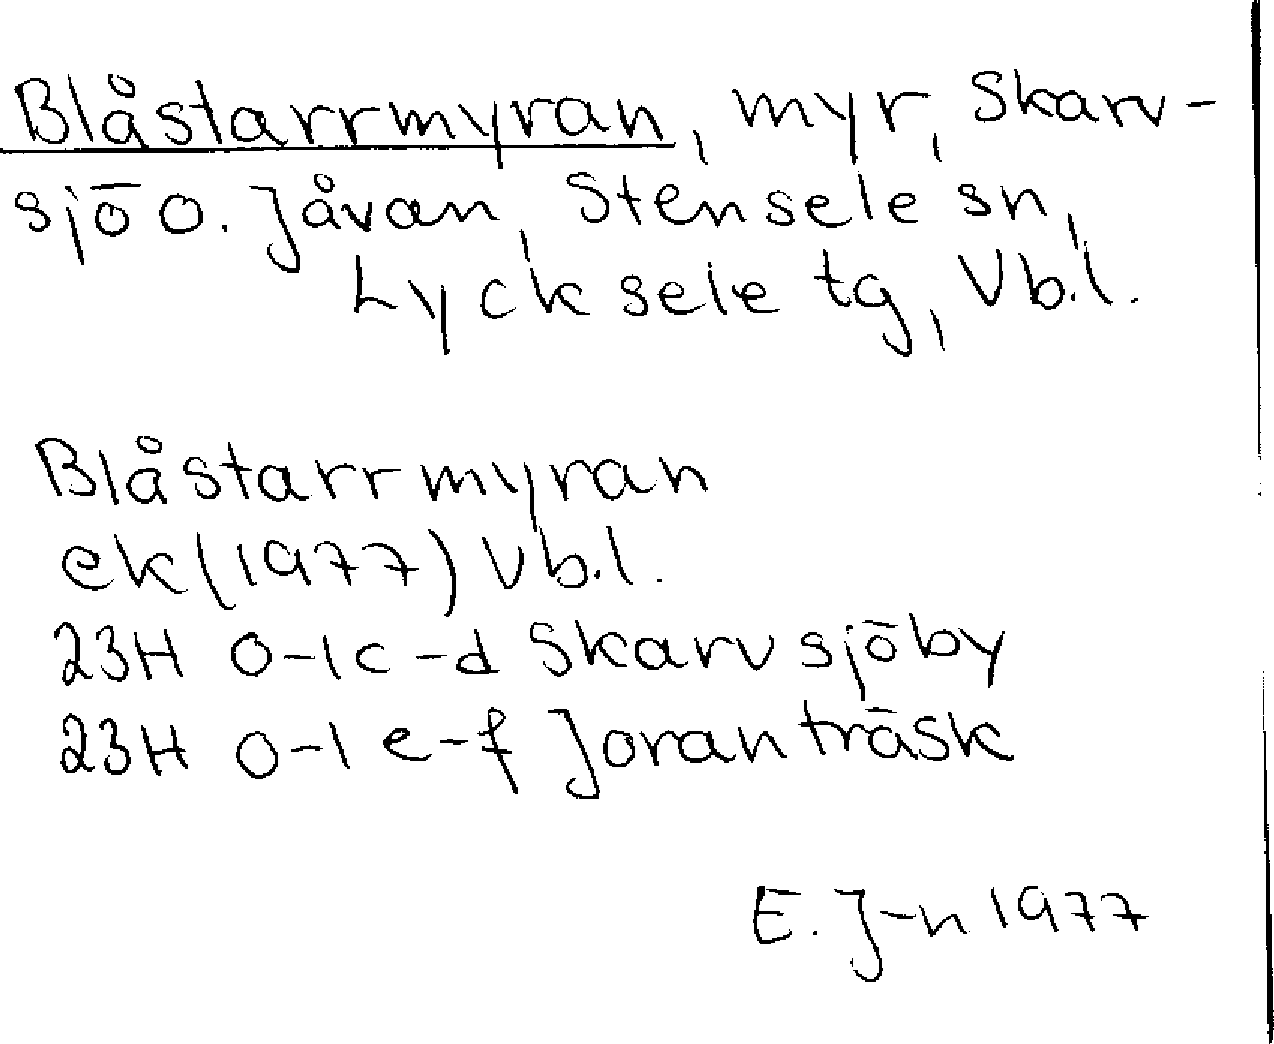 Blåstarrmyran, myr, Skarv-
sjö o. Jåvan, Stensele sn,
Lycksele tg, Vb.l.
Blåstarrmyran
ek (1977) Vb.l.
23H 0-1c-d Skarvsjöby
23H 0-1e-f Joranträsk
E. J-n 1977